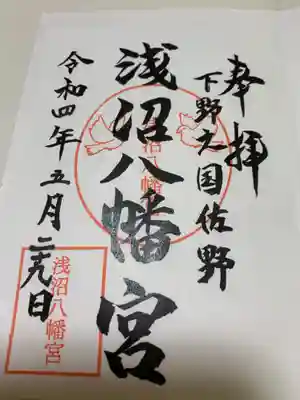 奉拝
下野之国佐野
浅沼八幡宮
令和四年五月二十九日
浅沼八幡宮